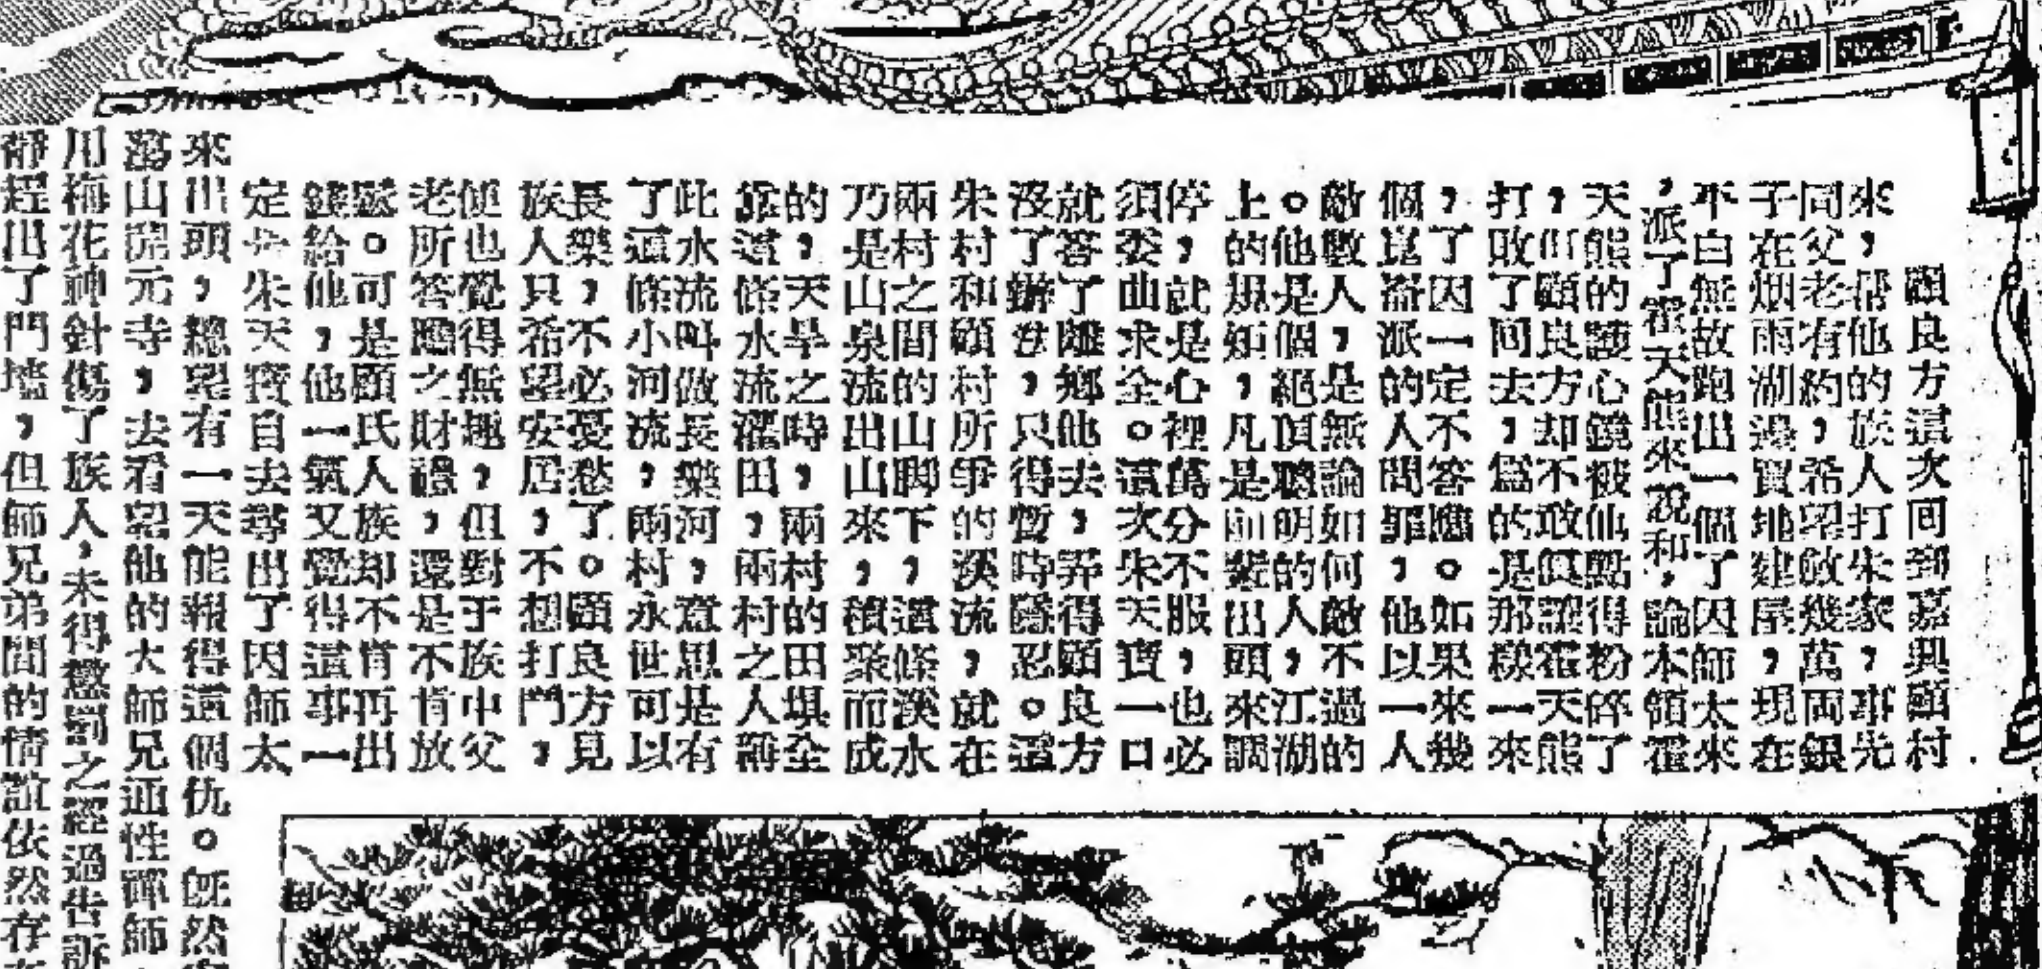 顧良方這次回鄉嘉興顧村
來,幫他的族人打朱家,事先
同父老有約,希望斂幾萬両銀
子在烟雨湖邊買地建屋,現在
不白無故跑出一個了因師太來
,派了霍天熊來說和,論本領霍
天熊的護心鏡被他點得粉碎了
,但顧良方却不敢眞讓霍天熊
打敗了回去,爲的是那樣一來
,了因一定不答應。如果來幾
個崑崙派的人問罪,他以一人
敵數人,是無論如何敵不過的
。他是個絕頂聰明的人,江湖
上的規矩,凡是前輩出頭來調
停,就是心裡萬分不服,也必
須委曲求全。這次朱天寶一口
就答了離鄉他去,弄得顧良方
沒了辦法,只得暫時隱忍。這
朱村和顧村所爭的溪流,就在
兩村之間的山脚下,這條溪水
乃是山泉流出山來,積聚而成
的,天旱之時,兩村的田填全
靠這條水流灌田,兩村之人稱
此水流叫做長樂河,意思是有
了這條小河流,兩村永世可以
長樂,不必憂愁了。顧良方見
族人只希望安居,不想打鬥,
便也覺得無趣,但對于族中父
老所答應之財禮,還是不肯放
鬆。可是顧氏人族却不肯再出
錢給他,他一氣又覺得這事一
定是朱天寶自去尋出了因師太
來出頭,總望有一天能報得這個仇。旣然
嵩山開元寺,去看望他的大師兄通性禪師
用梅花神針傷了族人,未得懲罰之經過告訴
靜趕出了門墻,但師兄弟間的情誼依然存